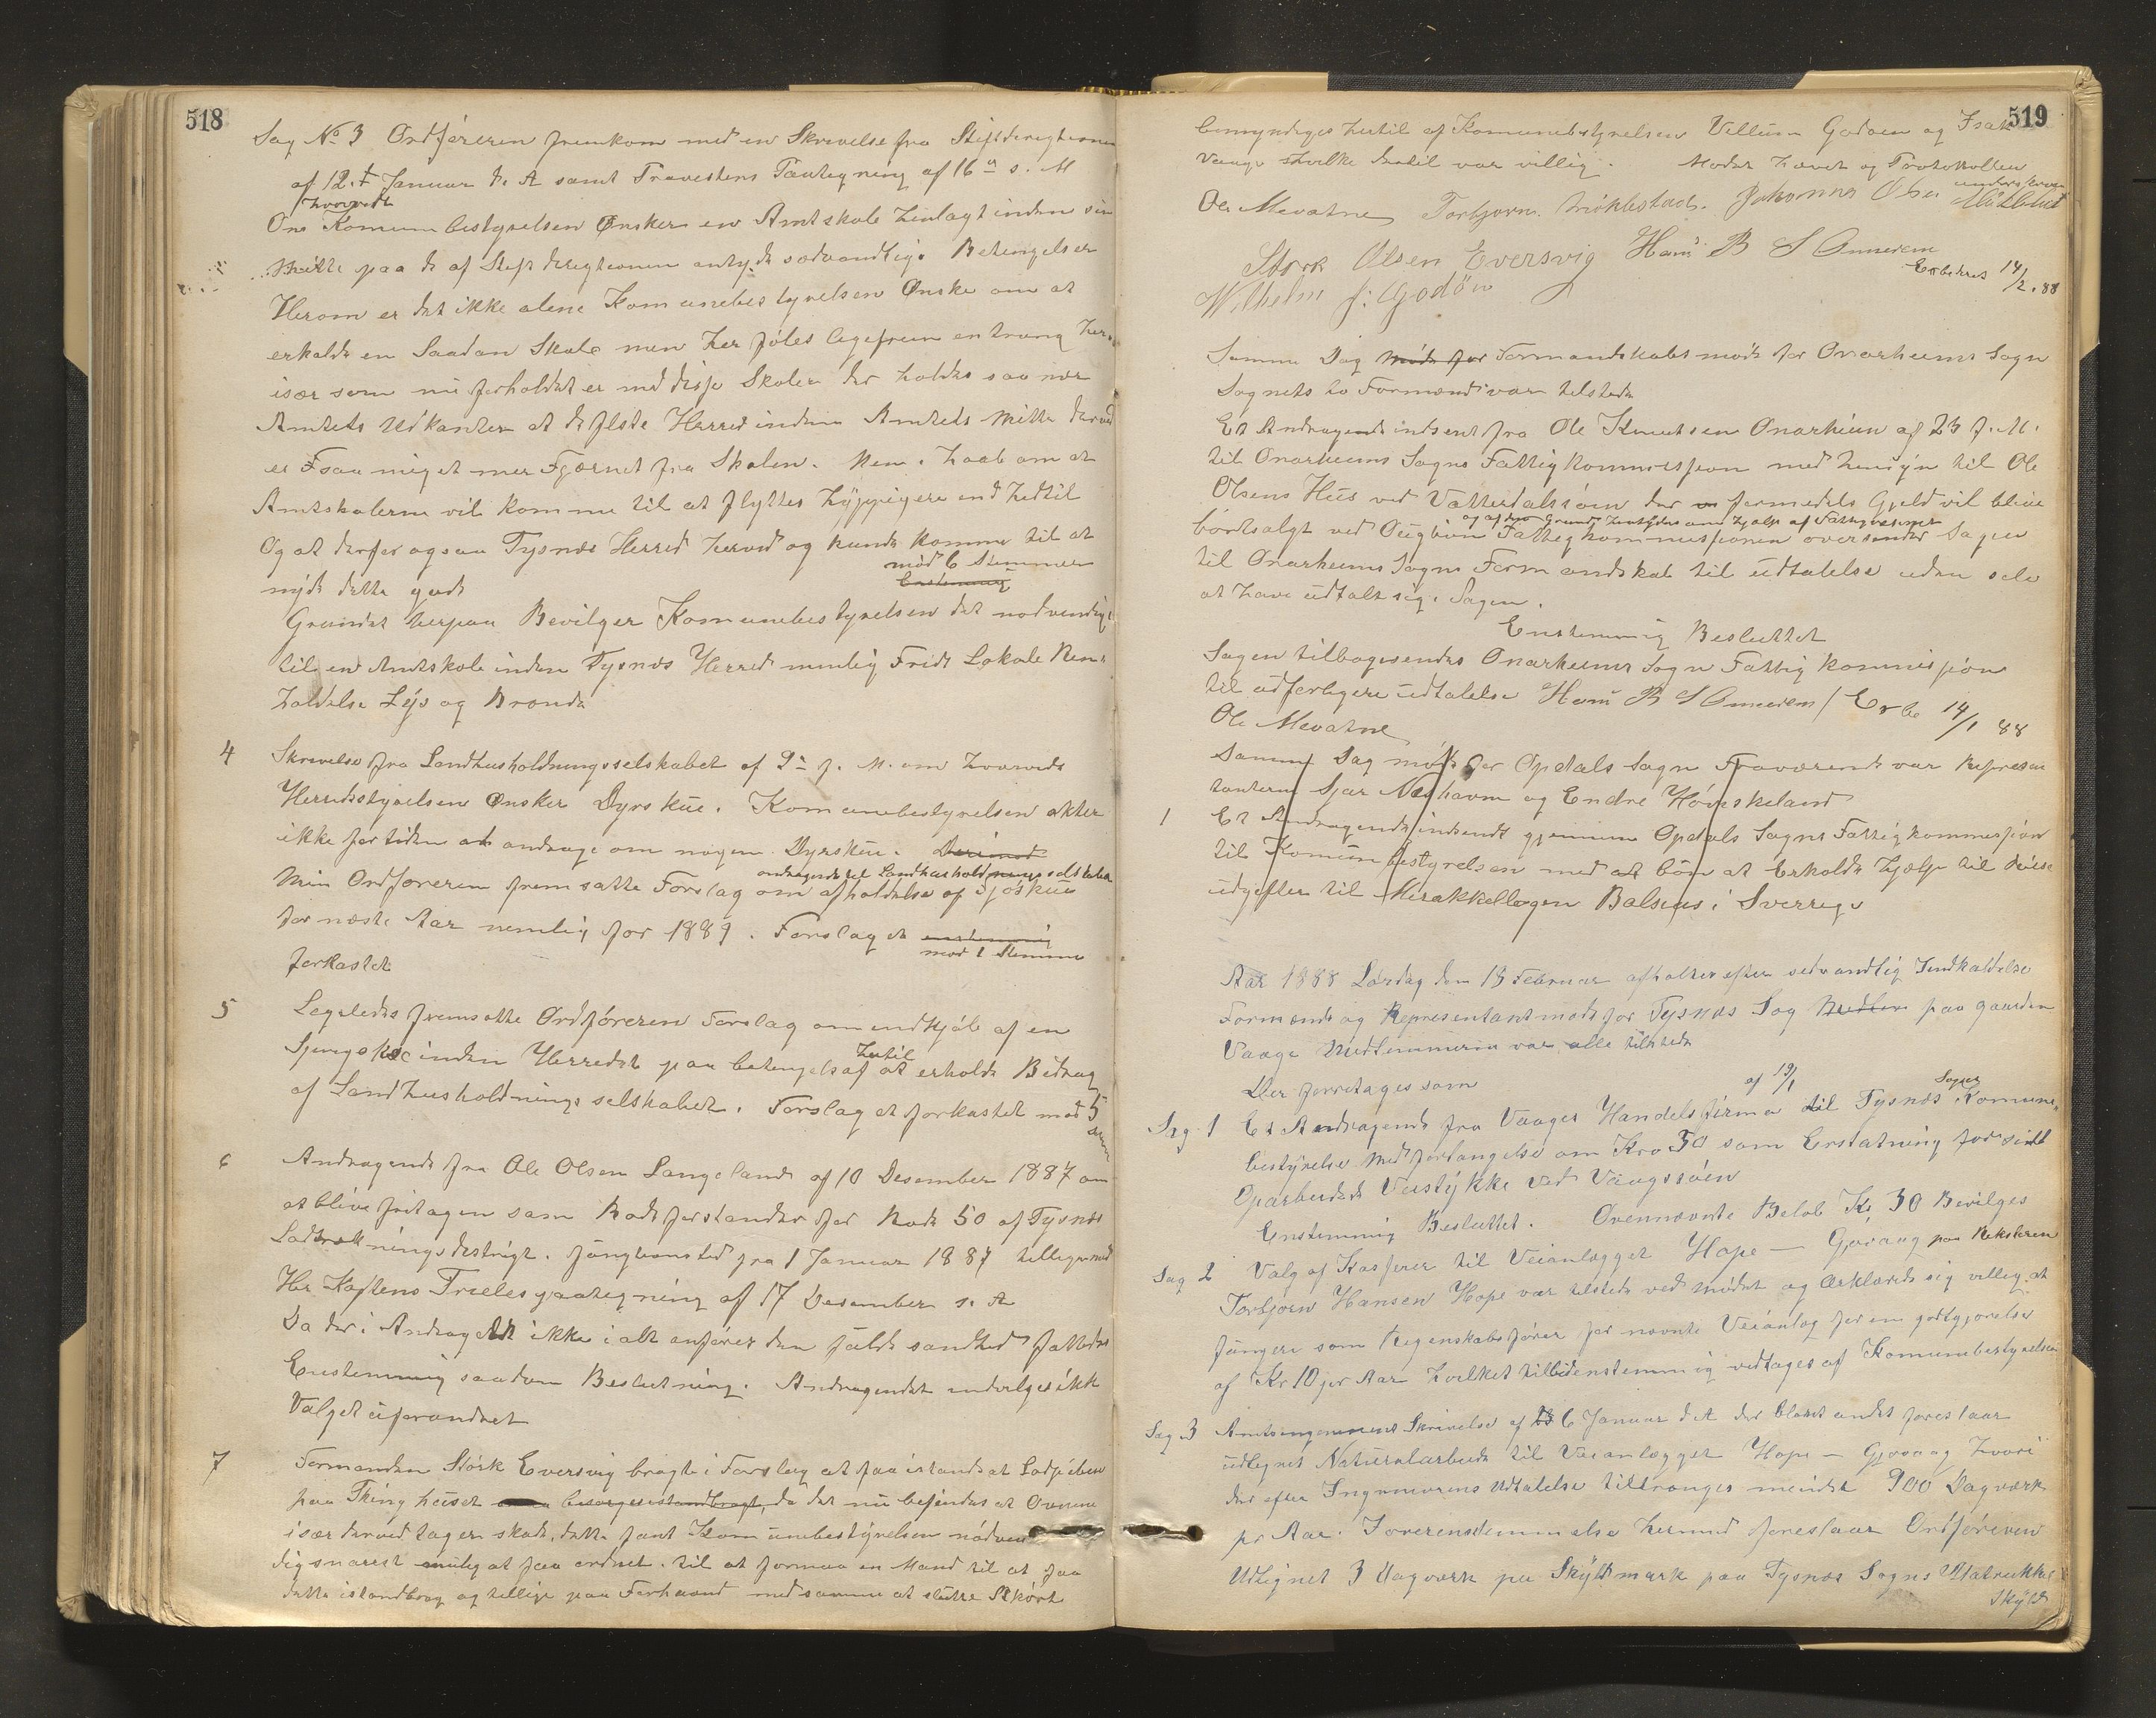 518
Sag No 3 Ordføreren fremkom med en Skrivelse fra Stiftdiregtionen
af 12.t Januar d. A samt Provstens Paategning af 16de s. M
hvorvidt
Om Komunebestyrelsen Ønsker en Amtskole henlagt inden sin
Midte paa de af Stiftdiregtionen antyde sedvandlige Betengelser
Herom er det ikke alene Komunebestyrelsen Ønske om at
erholde en Saadan Skole men her føles ligefrem en trang her
især som nu forholdet er med disse Skoler der holdes saa nær
Amtets Udkanter at de fleste Herred inden Amtets Mitte derved
er saa meget mer Fjærnet fra Skolen. Men i haab om at
Amtskolerne vil komme til at flyttes hyppigere end hedtil
Og at derfor ogsaa Tysnes Herred herved og kunde komme til at
mod 6 Stemmer
nyde dette gode Enstemmig
Grundet herpaa Bevilger Komunebestyrelsen det nødvendige
til en Amtskole inden Tysnes Herred nemlig Fridt Lokale Ren-
holdelse Lys og Brænde
4 Skrivelse fra Landhusholdningsselskabet af 9de f. M. om hvorvidt
Herredsstyrelsen Ønsker Dyrskue. Komunebestyrelsen akter
ikke for tiden at andrage om nogen Dyrskue. Derimod
andragende til Landhusholdningsselskabet
Min Ordføreren fremsatte Forslag om afholdelse af Sjoskue
for næste Aar nemlig for 1889. Forslaget enstemmig
mod 1 Stemme
forkastet
5 Legeledes fremsatte Ordføreren Forslag om indkjøb af en
hertil
inden Herredet paa betengelse af at erholde Bidrag
af Landhusholdningsselskabet. Forslaget forkastet mod 5
6 Andragende fra Ole Olsen Langeland af 10 Desember 1887 om
at blive fritagen som Rodeforstander for Rode 50 af Tysnes
Lodtrækningsdestrigt. fungtionstid fra 1 Januar 1887 tilligemed
Hr Kaptens Trieles paategning af 17 Desember s. A
Da der i Andraget ikke i alt anføres den fulde sandhed fattedes
Enstemmig saadan Beslutning. Andragendet indvilges ikke
Valget uforandret
7 Formanden Størk Eversvig bragte i Forslag at faa istand at Lodpiben
paa Thinghuset besørges istandbragt, da det nu befindes at Ovnene
især derved tager skade, dette fant Komunebestyrelsen nødven
dig snarest mulig at faa ordnet. til at formaa en Mand til at faa
dette istandbrag og tillige paa Forhaand med samme at slutte Akkort
519
bemyndiges hertil af Komunebestyrelsen Villum Godøen og Isak
Vaage hvilke dertil var villig. Mødet hævet og Protokollen
underskreven
Ole Mevatne Torbjørn Miklestad. Johannes Olsen
Størk Olsen Eversvig Hans B S Onnerem
Exberet 14/2. 88
Wilhelm J. Godöen
Samme Dag Møde for Formandskabsmøde for Onarheims Sogn
Sognets to Formænd var tilstede
Et Andragende indsent fra Ole Knutsen Onarheim af 23 f. M.
til Onarheims Sogns Fattigkommission med hensyn til Ole
Olsens Hus ved Vatterdalsøen der formedels Gjeld vil blive
og af den Grund hentydes om hjælp af Fattigvæsenet
bortsolgt ved Augtion Fattigkommissionen oversender Sagen
til Onarheims Sogns Formandskab til udtalelse uden selv
at have udtalt sig i Sagen.
Enstemmig Besluttet
Sagen tilbagesendes Onarheims Sogn Fattigkommission
til udførligere udtalelse Hans B S Onnerem / Exbe 14/1 88
Ole Mevatne
Samme Dag møde for Opdals Sogn Fraværende var Represen
tanterne Sjur Neshavn og Endre Høviskeland
1 Et Andragende indsendt gjennem Opdals Sogns Fattigkommission
til Komunebestyrelsen med at bøn at Erholde hjælp til
udgefter til Mirakkellægen Balseus i Sverrige
Aar 1888 Lørdag den 18 Februar afholtes efter sedvandlig Indkaldelse
Formænd og Representantmøde for Tysnes Sog Medlem paa gaarden
Vaage Medlemmerne var alle tilstede
Der forretages som
af 19/1 Sogns
Sag 1 Et Andragende fra Vaages Handelsfirma til Tysnes Komune-
bestyrelse med forlangelse om Kro 50 som Erstatning for sidt
Oparbeidede Veistykke ved Vaagssøen
Enstemmig Besluttet. Ovennævnte Beløb Kr 30 Bevilges
Sag 2 Valg af Kasserer til Veianlægget Hope - Gjøvaag paa Reksteren
Torbjørn Hansen Hope var tilstede ved mødet og erklærede sig villig at
fungere som Regenskabsfører for nævnte Veianlæg for en godtgjørelse
af Kr 10 pr Aar hvilket tilbud enstemmig vedtages af Komunebestyrelsen
Sag 3 Amtsingeniørens Skrivelse af 6 Januar d A der blant andet foreslaar
udlignet Naturalarbeide til Veianlægget Hope - Gjøvaag hvori
der efter Ingeniørens Udtalelse tiltrænges mindst 900 Dagværk
pr Aar. I overensstemmelse hermed foreslaar Ordføreren
Udlignet 3 Dagværk pr Skyldmark paa Tysnes Sogns Matrukkel
Skyld